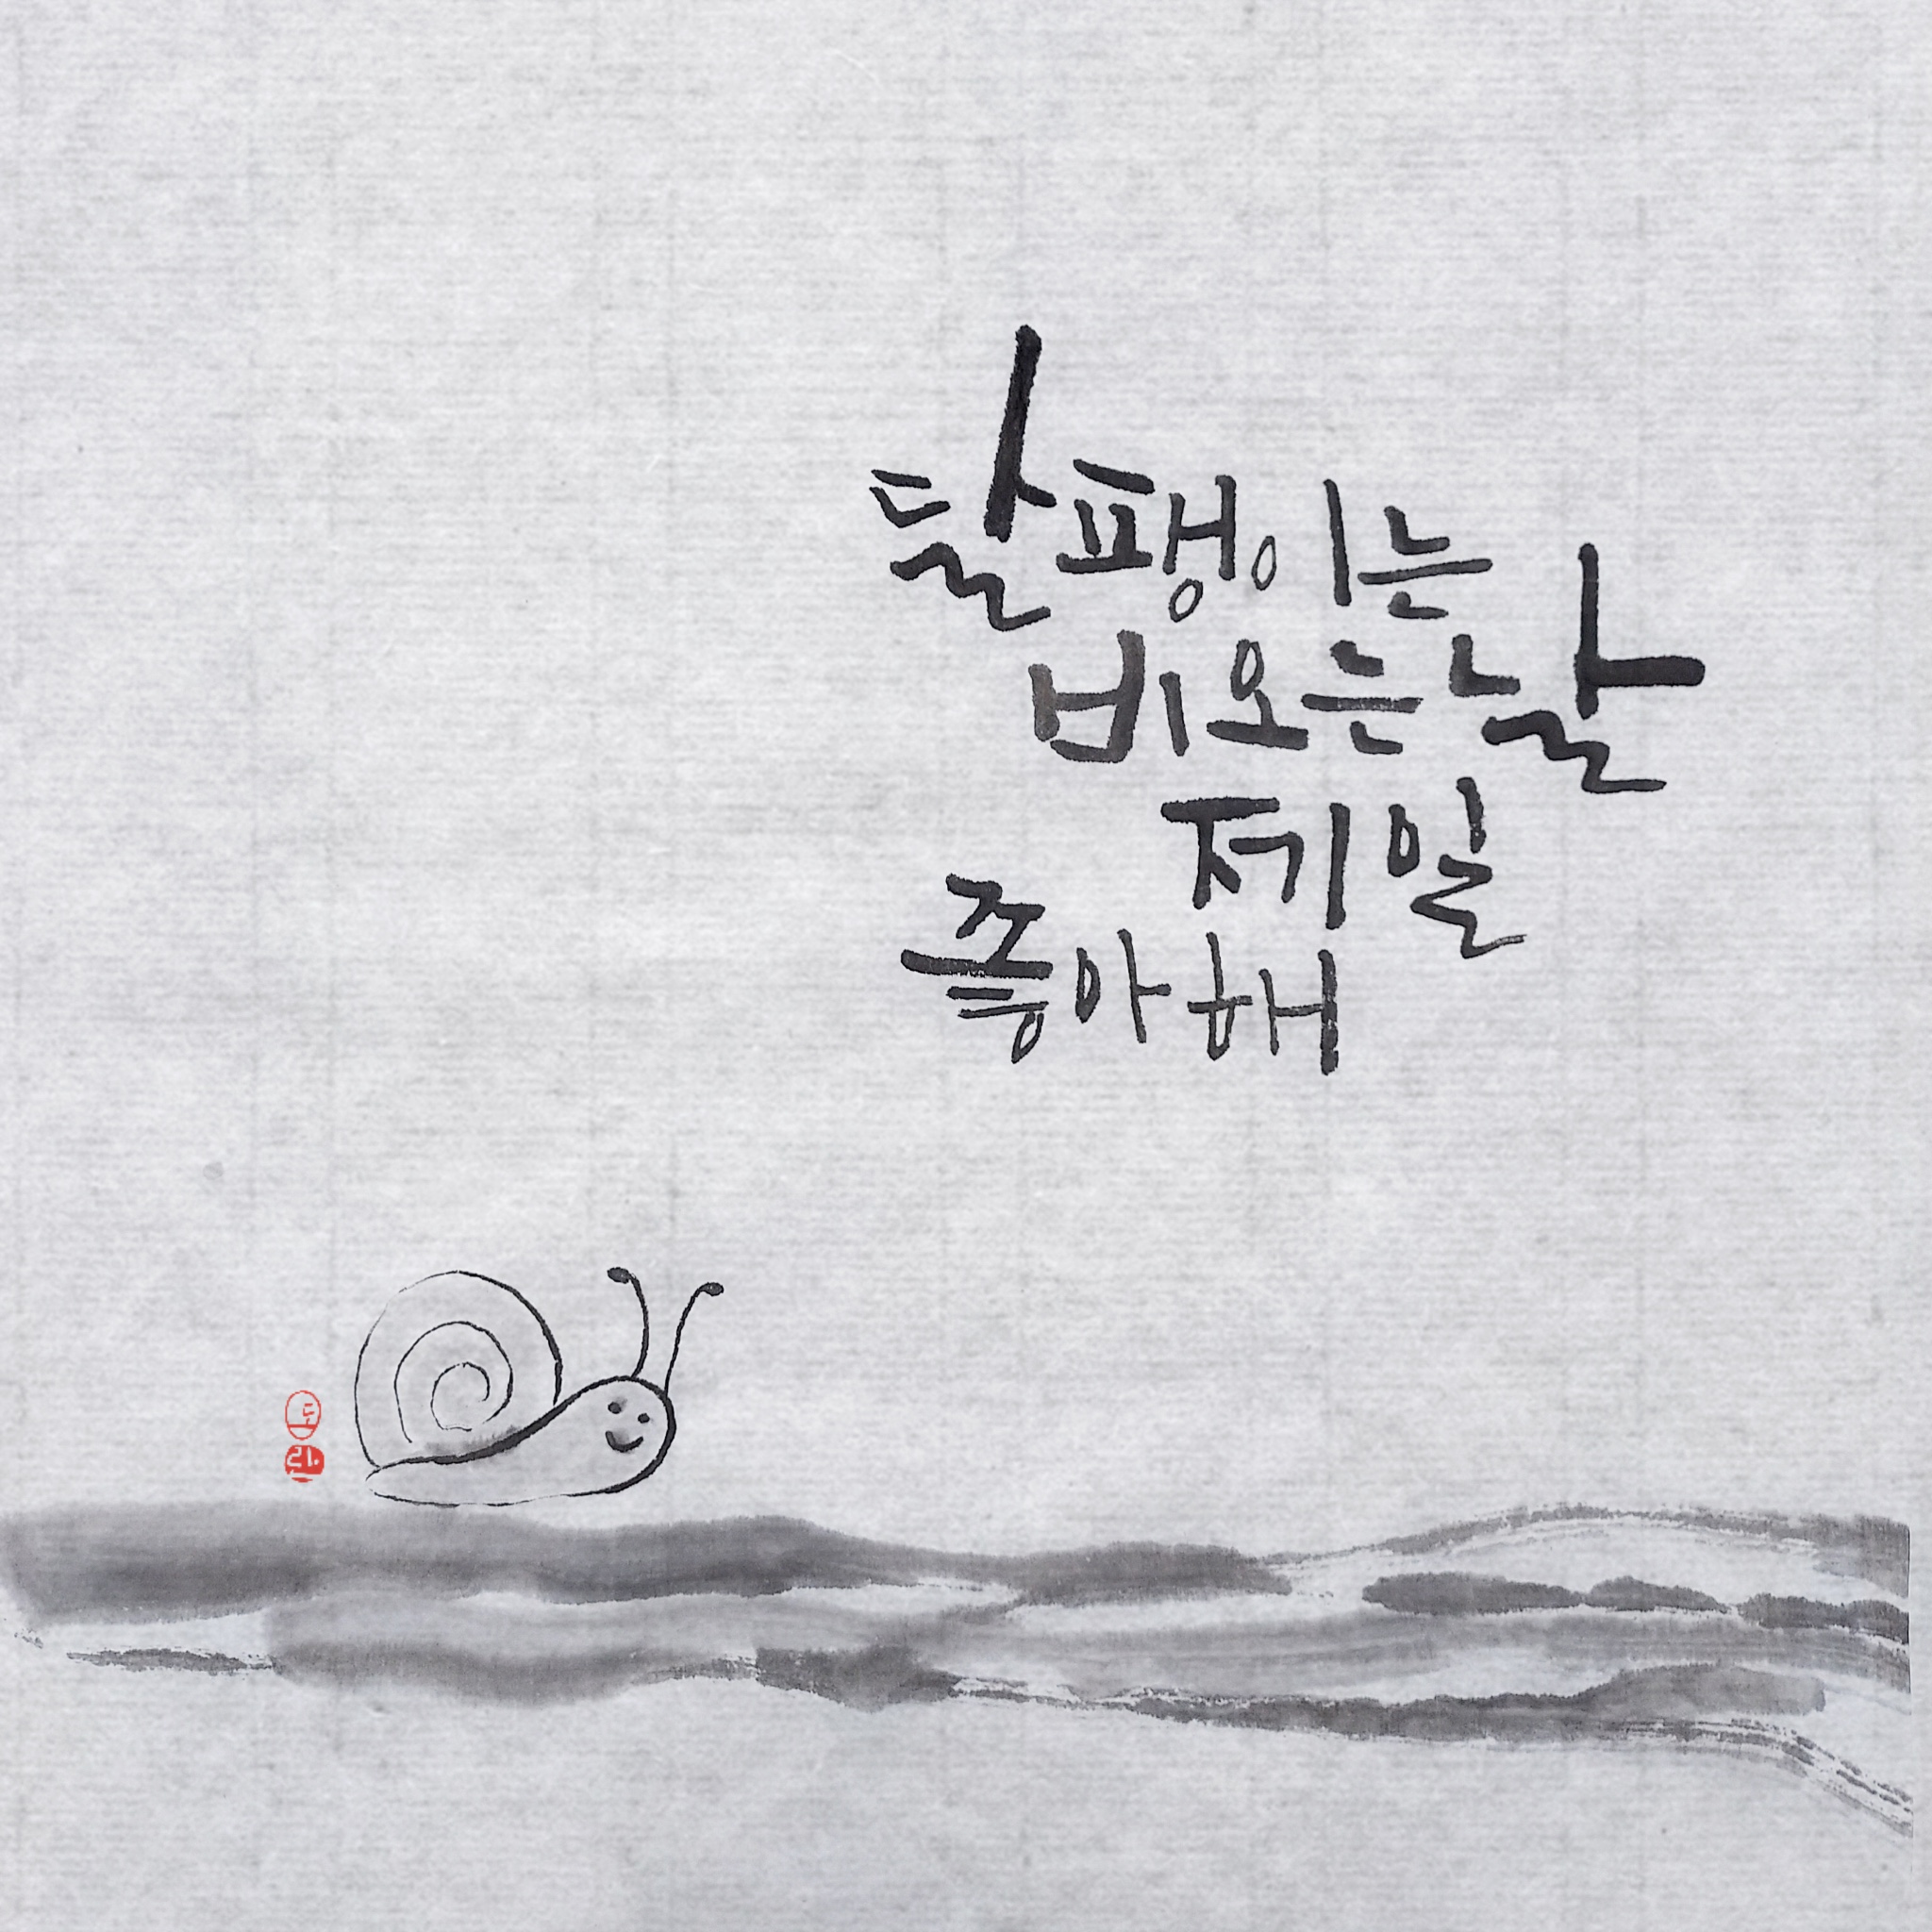 달팽이는
비오는날
제일
좋아해